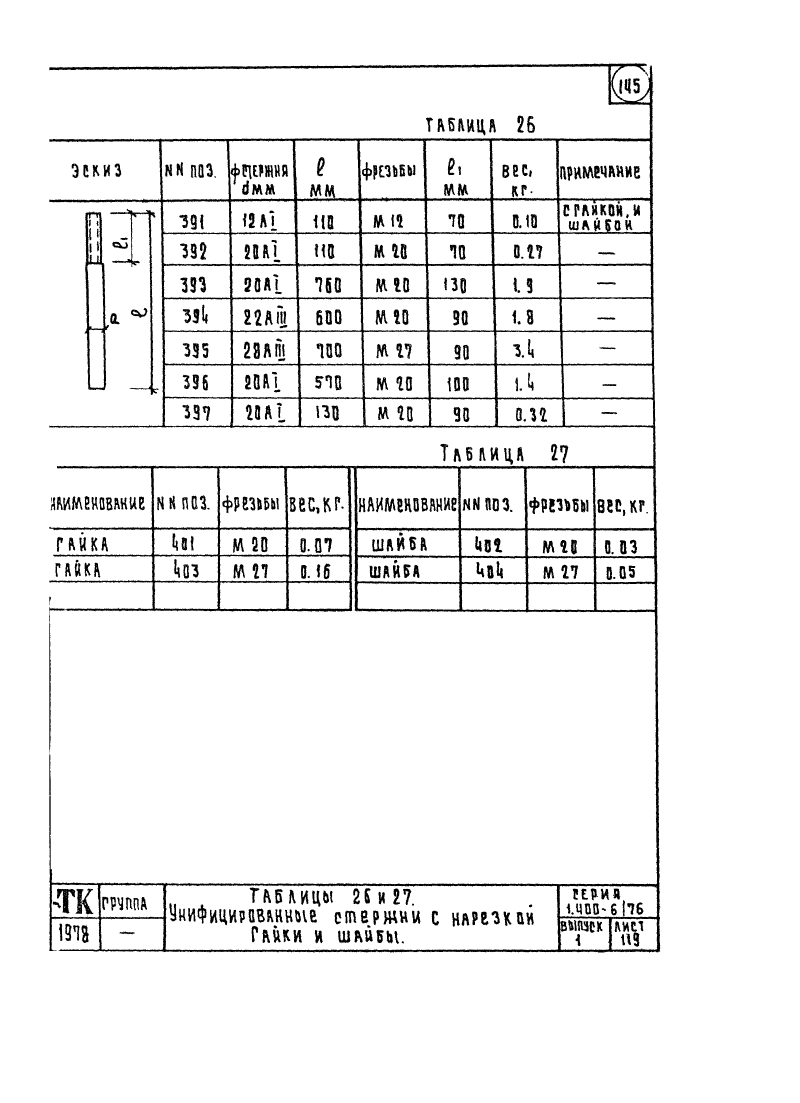 145
ТАБЛИЦА 26
ЭСКИЗ NN ПОЗ. ϕСТЕРЖНЯ dММ ℓ ММ ϕРЕЗЬБЫ ℓ1 ММ ВЕС, КГ. ПРИМЕЧАНИЕ
391 12АI 110 М 12 70 0.10 С ГАЙКОЙ, И ШАЙБОЙ
392 20АI 110 М 20 70 0.27 —
393 20АI 760 М 20 130 1.9 —
394 22АIII 600 М 20 90 1.8 —
395 28АIII 700 М 27 90 3.4 —
396 20АI 570 М 20 100 1.4 —
397 20АI 130 М 20 90 0.32 —
ℓ1
d
ℓ
ТАБЛИЦА 27
НАИМЕНОВАНИЕ NN ПОЗ. ϕРЕЗЬБЫ ВЕС, КГ. НАИМЕНОВАНИЕ NN ПОЗ. ϕРЕЗЬБЫ ВЕС, КГ.
ГАЙКА 401 М 20 0.07 ШАЙБА 402 М 20 0.03
ГАЙКА 403 М 27 0.16 ШАЙБА 404 М 27 0.05
ТК ГРУППА
1978 —
ТАБЛИЦЫ 26 И 27.
УНИФИЦИРОВАННЫЕ СТЕРЖНИ С НАРЕЗКОЙ
ГАЙКИ И ШАЙБЫ.
СЕРИЯ
1.400-6/76
ВЫПУСК ЛИСТ
1 119